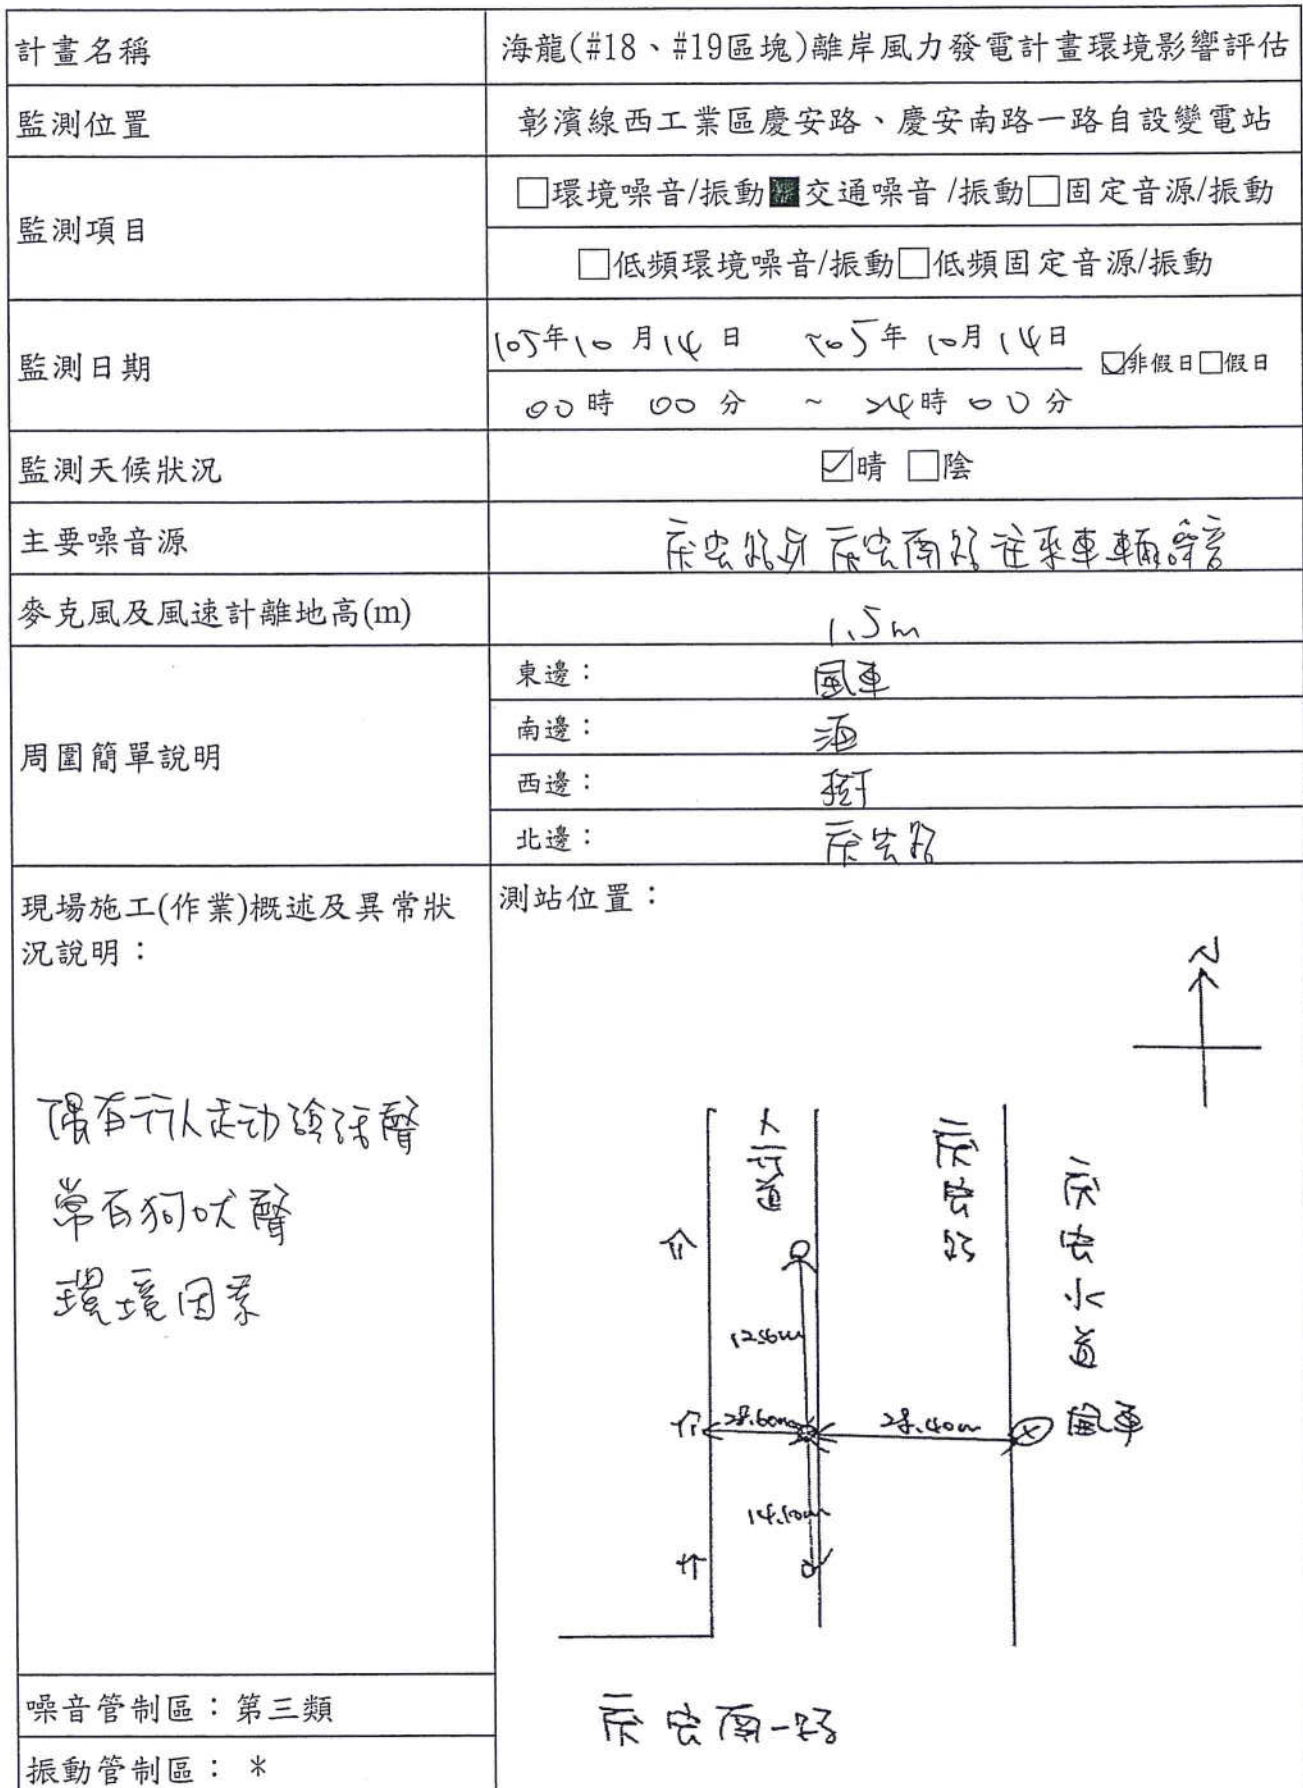 計畫名稱
海龍(#18、#19區塊)離岸風力發電計畫環境影響評估
監測位置
彰濱線西工業區慶安路、慶安南路一路自設變電站
監測項目
□環境噪音/振動■交通噪音/振動□固定音源/振動
□低頻環境噪音/振動□低頻固定音源/振動
監測日期
105年10月14日 105年10月14日
☑非假日□假日
00時00分 ~ 24時00分
監測天候狀況
☑晴 □陰
主要噪音源
庆安路及庆安南路往來車輛噪音
麥克風及風速計離地高(m)
1.5m
周圍簡單說明
東邊：風車
南邊：海
西邊：樹
北邊：庆安路
現場施工(作業)概述及異常狀
況說明：
偶有行人走动談話聲
常有狗吠聲
環境因素
測站位置：
N
人行道
庆安路
庆安水道
28.40m
風車
庆安南一路
噪音管制區：第三類
振動管制區：*